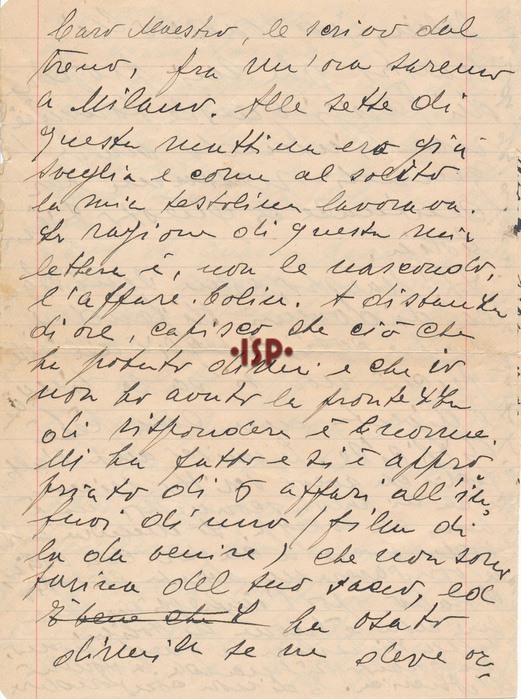 Caro Maestro, le scrivo dal
treno, fra un'ora saremo
a Milano. Alle sette di
questa mattina ero già
sveglia e come al solito
la mia testolina lavorava.
La ragione di questa mia
lettera è, non le nascondo,
l'affare. Colin. A distanza
di ore, capisco che ciò che
ha potuto e che io
non ho avuto la prontezza
di rispondere è enorme.
Mi ha fatto e si è appro
priato di 5 affari all'in,
fuori di uno (film di
la da venire) che non sono
farina del suo sacco, ed
È bene che ha osato
dirmi se ne deve
·ISP·